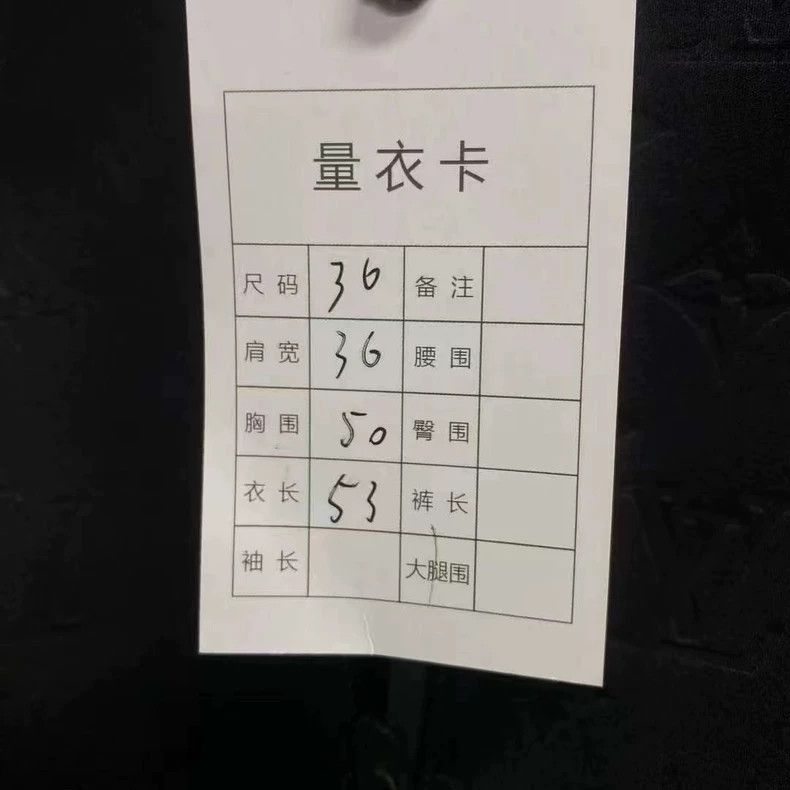 量衣卡
尺码 36 备注
肩宽 36 腰围
胸围 50 臀围
衣长 53 裤长
袖长 大腿围